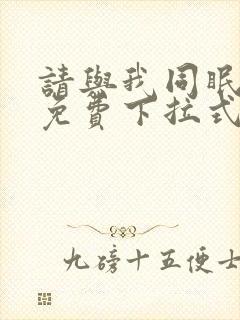 請與我同眠
免費下拉式
九磅十五便士